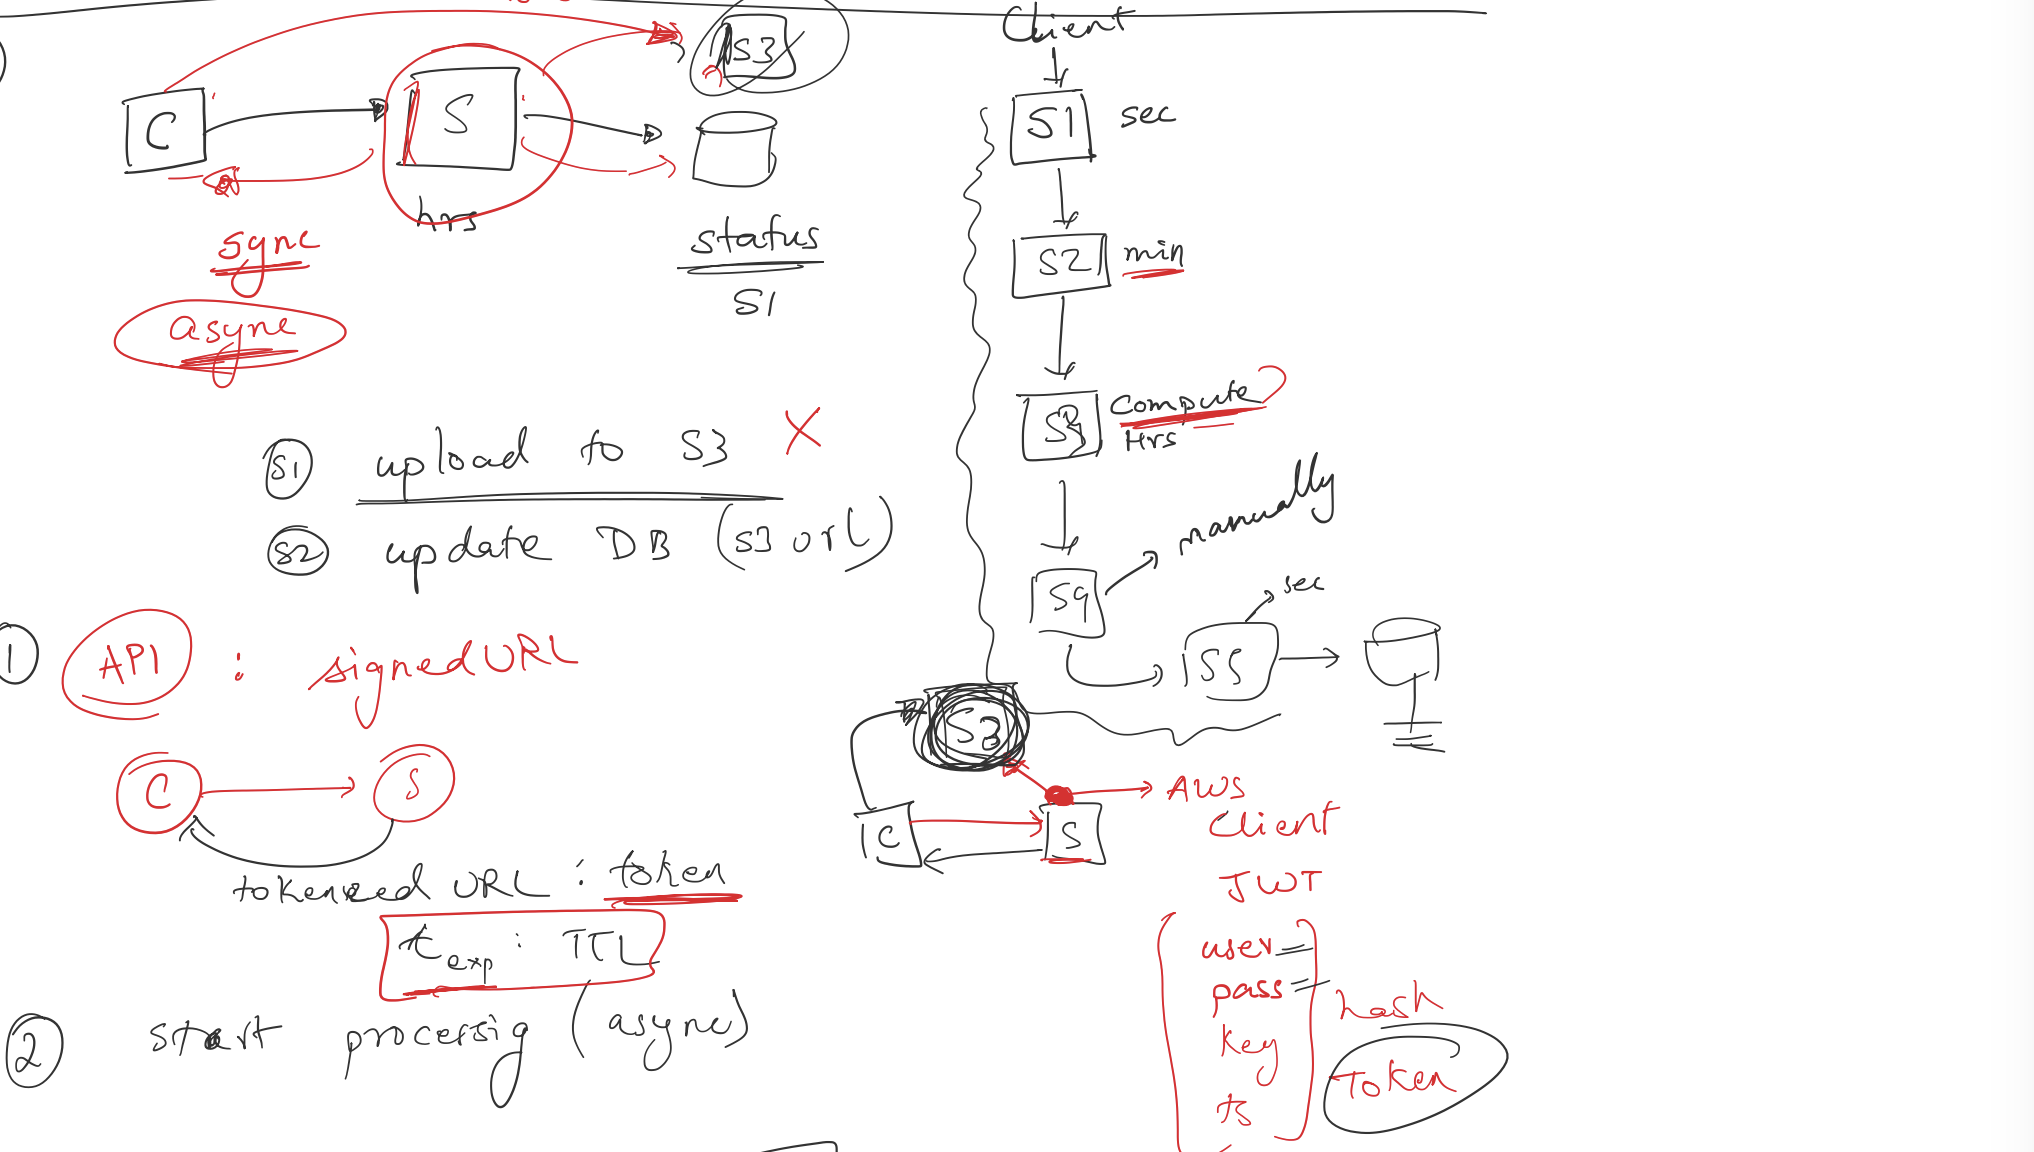 S3
C
S
hrs
sync
async
status
S1
S1 upload to S3 X
S2 update DB (S3 url)
1 API : signedURL
C
S
tokenized URL : token
t exp : TTL
2 start processig (async)
Client
S1 sec
S2 min
Compute
Hrs
manually
S4
sec
S5
S3
C
S
AWS
Client
JWT
user
pass
key
ts
hash
Token